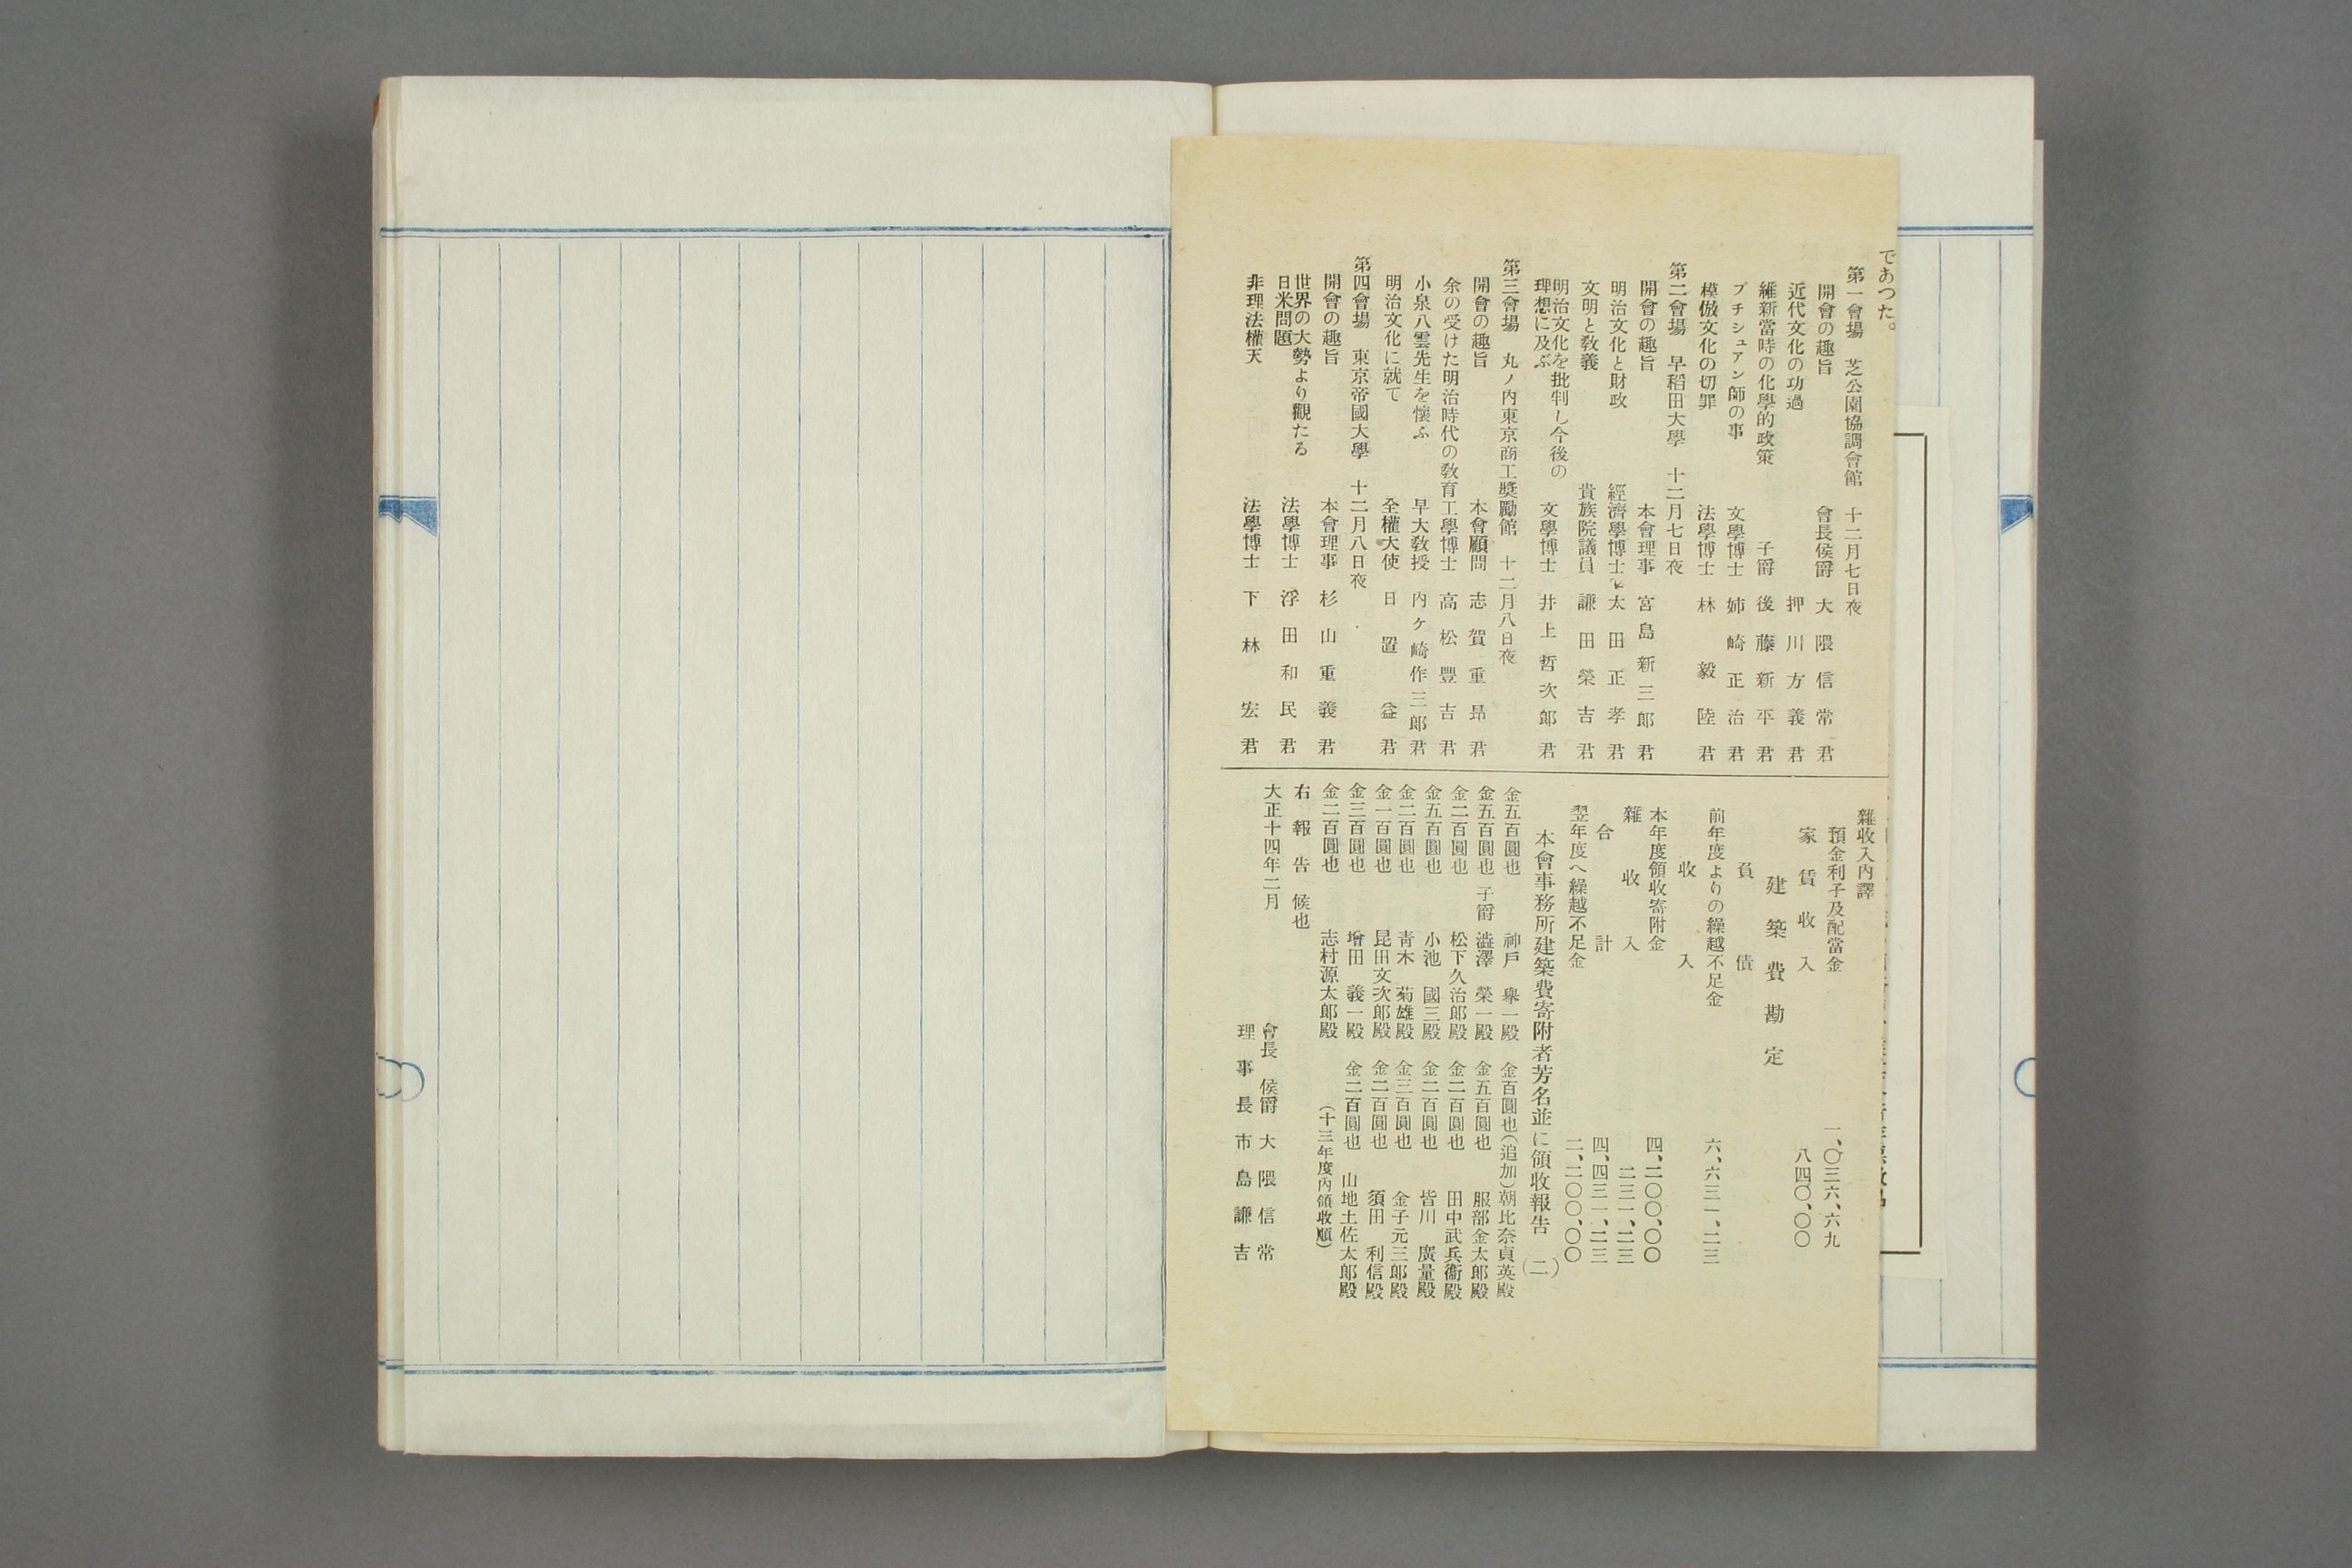 であつた。
第一會場　芝公園協調會館　十二月七日夜
開會の趣旨　會長侯爵　大隈信常君
近代文化の功過　押川方義君
維新當時の化學的政策　子爵　後藤新平君
プチシュアン師の事　文學博士　姉崎正治君
模倣文化の切罪　法學博士　林毅陸君
第二會場　早稻田大學　十二月七日夜
開會の趣旨　本會理事　宮島新三郎君
明治文化と財政　經濟學博士　太田正孝君
文明と敎義　貴族院議員　鎌田榮吉君
明治文化を批判し今後の
理想に及ぶ　文學博士　井上哲次郎君
第三會場　丸ノ內東京商工奬勵館　十二月八日夜
開會の趣旨　本會顧問　志賀重昂君
余の受けた明治時代の敎育　工學博士　高松豐吉君
小泉八雲先生を懷ふ　早大敎授　內ケ崎作三郎君
明治文化に就て　全權大使　日置益君
第四會場　東京帝國大學　十二月八日夜
開會の趣旨　本會理事　杉山重義君
世界の大勢より觀たる
日米問題　法學博士　浮田和民君
非理法權天　法學博士　下林宏君
雜收入內譯
預金利子及配當金　一、〇三六、六九
家賃收入　八四〇、〇〇
建築費勘定
負債
前年度よりの繰越不足金　六、六三一、二三
收入
本年度領收寄附金　四、二〇〇、〇〇
雜收入　二三一、二三
合計　四、四三一、二三
翌年度へ繰越不足金　二、二〇〇、〇〇
本會事務所建築費寄附者芳名並に領收報告（二）
金五百圓也　神戶擧一殿　金百圓也（追加）朝比奈貞英殿
金五百圓也　子爵　澁澤榮一殿　金五百圓也　服部金太郎殿
金二百圓也　松下久治郎殿　金二百圓也　田中武兵衞殿
金五百圓也　小池國三殿　金二百圓也　皆川廣量殿
金二百圓也　靑木菊雄殿　金三百圓也　金子元三郎殿
金一百圓也　昆田文次郎殿　金二百圓也　須田利信殿
金三百圓也　增田義一殿　金二百圓也　山地土佐太郎殿
金二百圓也　志村源太郎殿　（十三年度內領收順）
右報告候也
大正十四年二月
會長　侯爵　大隈信常
理事長　市島謙吉